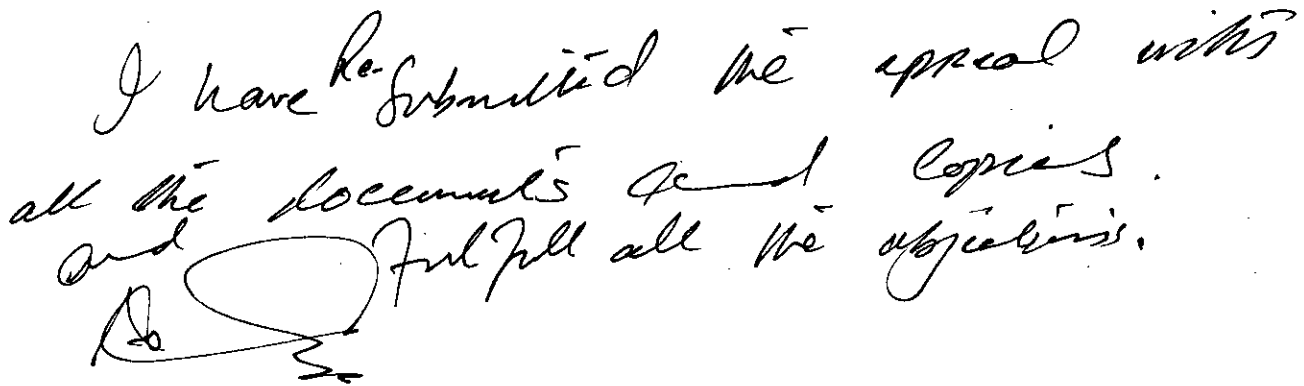 I have Re-Submitted the appeal with
all the documents and copies.
and Fulfill all the objections.